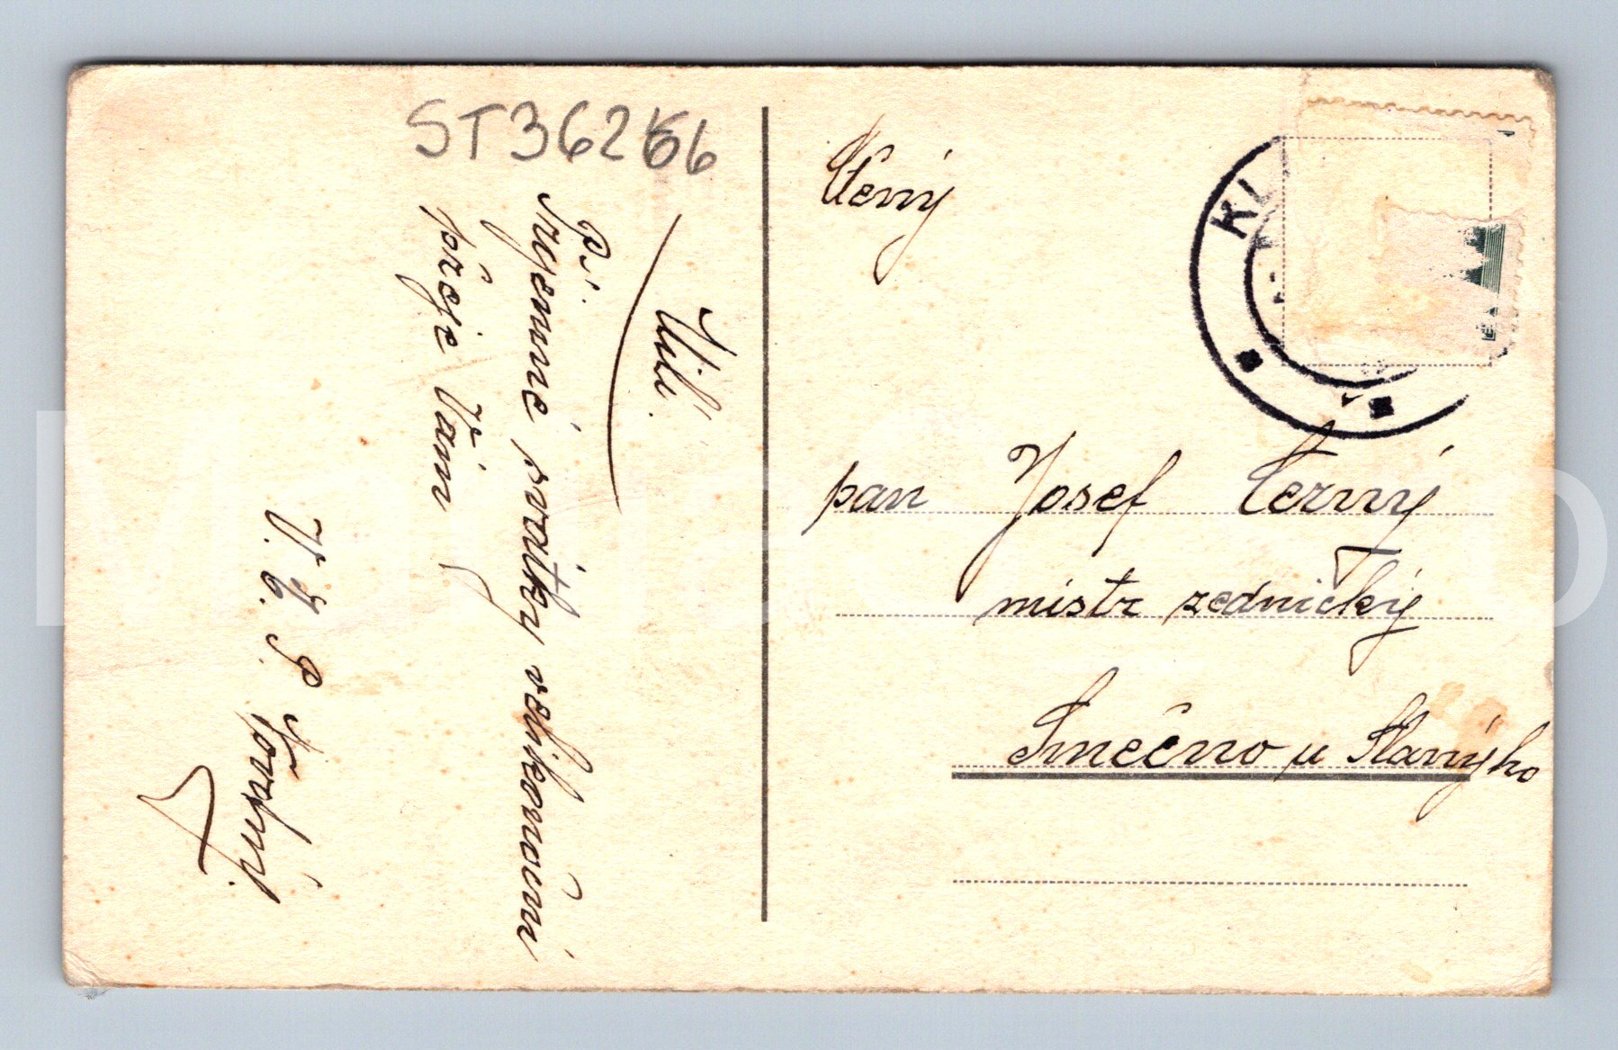 ST36256
Milí.
př.
Příjemné svátky velikonoční
přeje Vám
V. P.
Černý
KL
pan Josef Černý
mistr zednický
Smečno u Slanýho